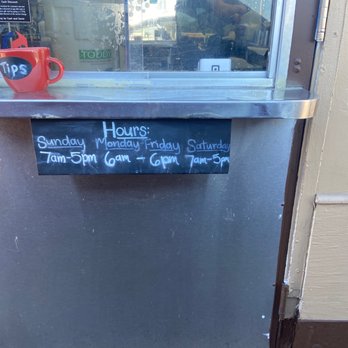 Tips
Hours:
Sunday Monday-Friday Saturday
7am-5pm 6am - 6pm 7am-5pm